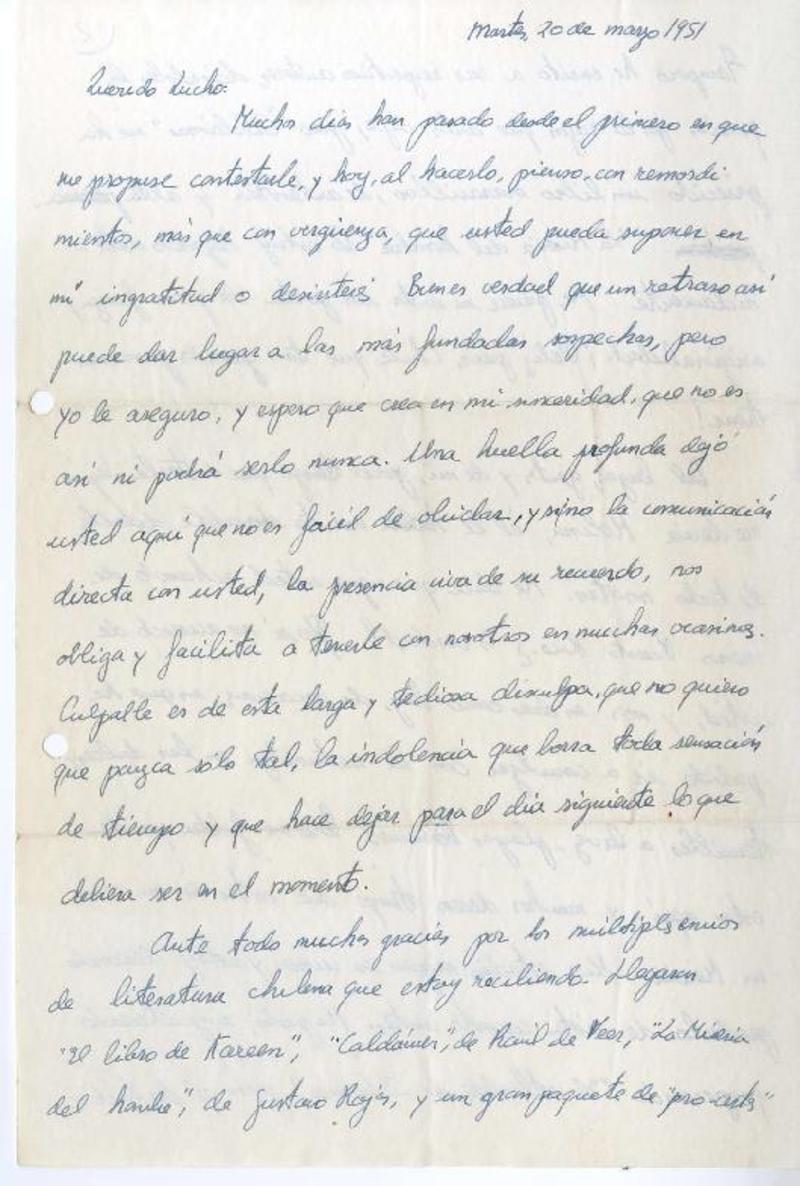 Martes, 20 de marzo 1951
Querido Lucho:
Muchos días han pasado desde el primero en que
me propuse contestarle, y hoy, al hacerlo, pienso, con remordi
mientos, más que con vergüenza, que usted pueda suponer en
mí ingratitud o desinterés. Bien es verdad que un retraso así
puede dar lugar a las más fundadas sospechas, pero
yo le aseguro, y espero que crea en mi sinceridad, que no es
así ni podrá serlo nunca. Una huella profunda dejó
usted aquí que no es fácil de olvidar, y sino la comunicación
directa con usted, la presencia viva de su recuerdo, nos
obliga y facilita a tenerle con nosotros en muchas ocasiones.
Culpable es de esta larga y tediosa disculpa, que no quiero
que parezca sólo tal, la indolencia que borra toda sensación
de tiempo y que hace dejar para el día siguiente lo que
debiera ser en el momento.
Ante todo muchas gracias por los múltiples envios
de literatura chilena que estoy recibiendo. Llegaron
"El libro de Kareen", "Caldámer", de Raúl de Veer, "La Miseria
del hombre", de Gustavo Rojas, y un gran paquete de "pro-arte"